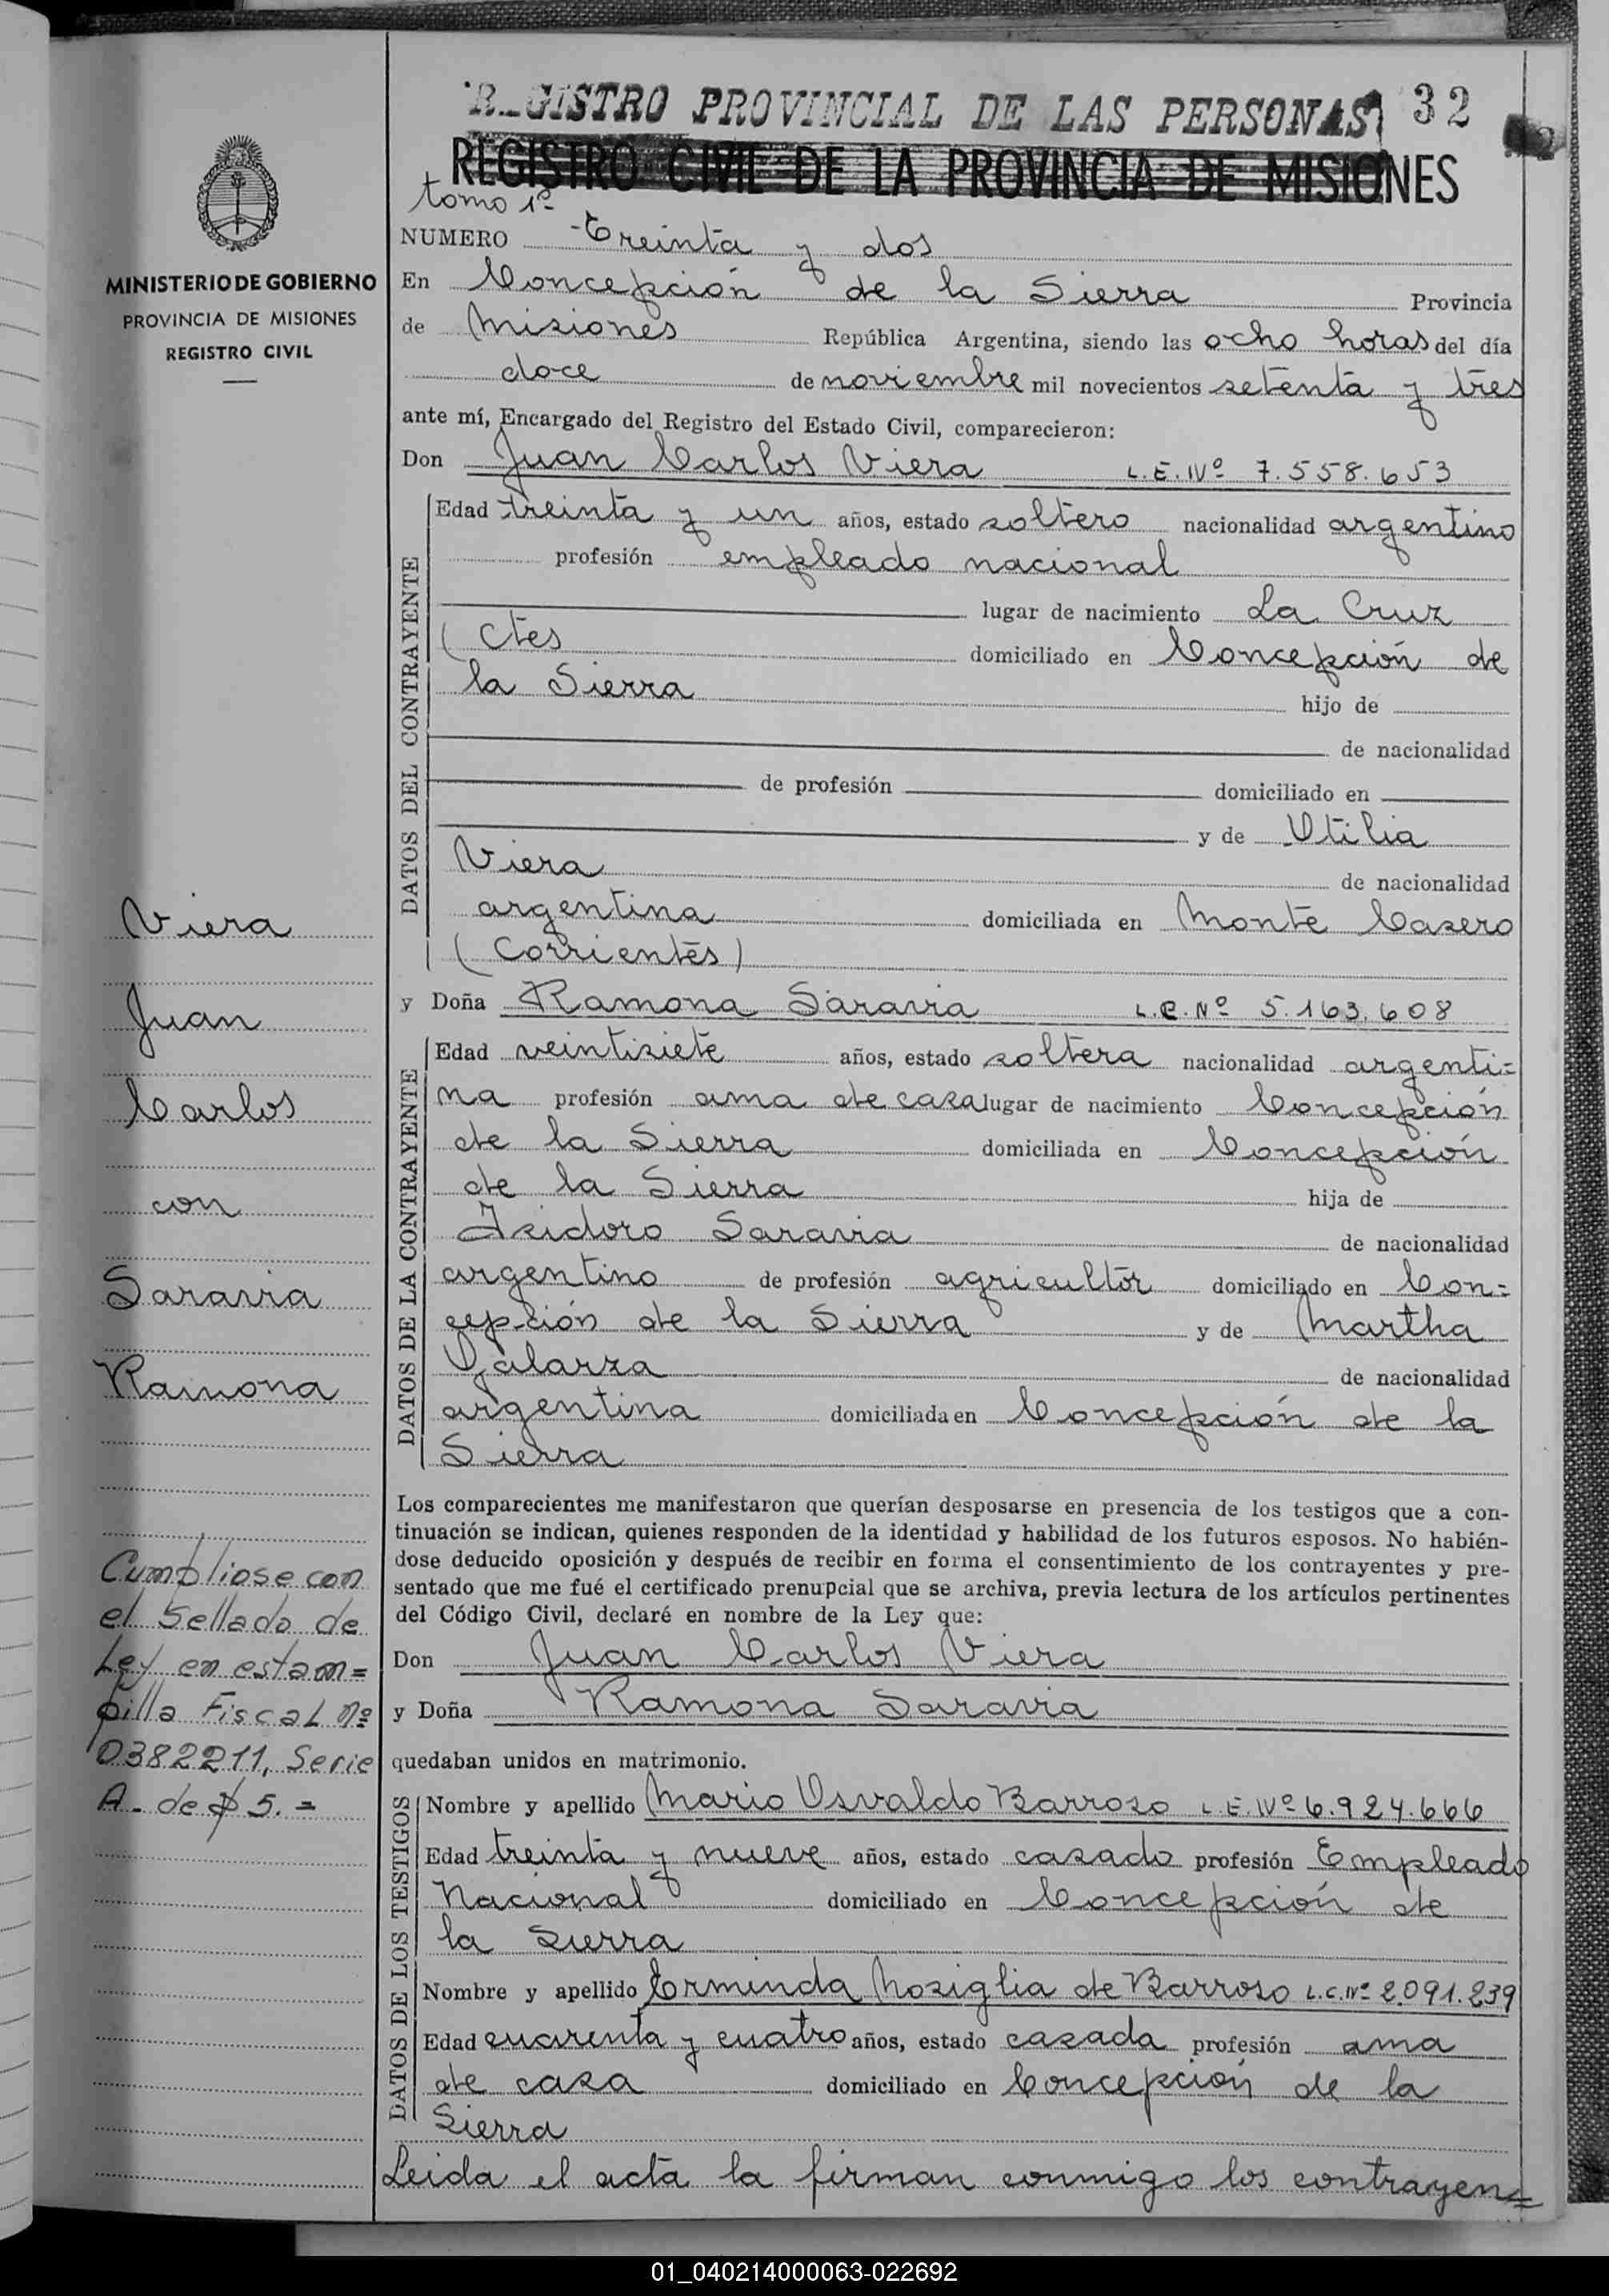 REGISTRO PROVINCIAL DE LAS PERSONAS 32
REGISTRO CIVIL DE LA PROVINCIA DE MISIONES
tomo 1º
MINISTERIO DE GOBIERNO
PROVINCIA DE MISIONES
REGISTRO CIVIL
NUMERO Treinta y dos
En Concepción de la Sierra Provincia
de Misiones República Argentina, siendo las ocho horas del día
doce de noviembre mil novecientos setenta y tres
ante mí, Encargado del Registro del Estado Civil, comparecieron:
Don Juan Carlos Viera L.E.Nº 7.558.653
DATOS DEL CONTRAYENTE
Edad treinta y un años, estado soltero nacionalidad argentino
profesión empleado nacional
lugar de nacimiento La Cruz
(Ctes domiciliado en Concepción de
la Sierra hijo de
de nacionalidad
de profesión domiciliado en
y de Utilia
Viera de nacionalidad
argentina domiciliada en Monte Casero
(Corrientes)
y Doña Ramona Saravia L.C.Nº 5.163.608
DATOS DE LA CONTRAYENTE
Edad veintisiete años, estado soltera nacionalidad argenti=
na profesión ama de casa lugar de nacimiento Concepción
de la Sierra domiciliada en Concepción
de la Sierra hija de
Isidoro Saravia de nacionalidad
argentino de profesión agricultor domiciliado en Con=
cepción de la Sierra y de Martha
Galarza de nacionalidad
argentina domiciliada en Concepción de la
Sierra
Los comparecientes me manifestaron que querían desposarse en presencia de los testigos que a con-
tinuación se indican, quienes responden de la identidad y habilidad de los futuros esposos. No habién-
dose deducido oposición y después de recibir en forma el consentimiento de los contrayentes y pre-
sentado que me fué el certificado prenupcial que se archiva, previa lectura de los artículos pertinentes
del Código Civil, declaré en nombre de la Ley que:
Don Juan Carlos Viera
y Doña Ramona Saravia
quedaban unidos en matrimonio.
DATOS DE LOS TESTIGOS
Nombre y apellido Mario Osvaldo Barroso L.E.Nº 6.924.666
Edad treinta y nueve años, estado casado profesión Empleado
Nacional domiciliado en Concepción de
la Sierra
Nombre y apellido Erminda Nosiglia de Barroso L.C.Nº 2.091.239
Edad cuarenta y cuatro años, estado casada profesión ama
de casa domiciliado en Concepción de la
Sierra
Leida el acta la firman conmigo los contrayen=
Viera
Juan
Carlos
con
Saravia
Ramona
Cumpliose con
el Sellado de
Ley en estam=
pilla Fiscal Nº
0382211, Serie
A. de $ 5. =
01_040214000063-022692